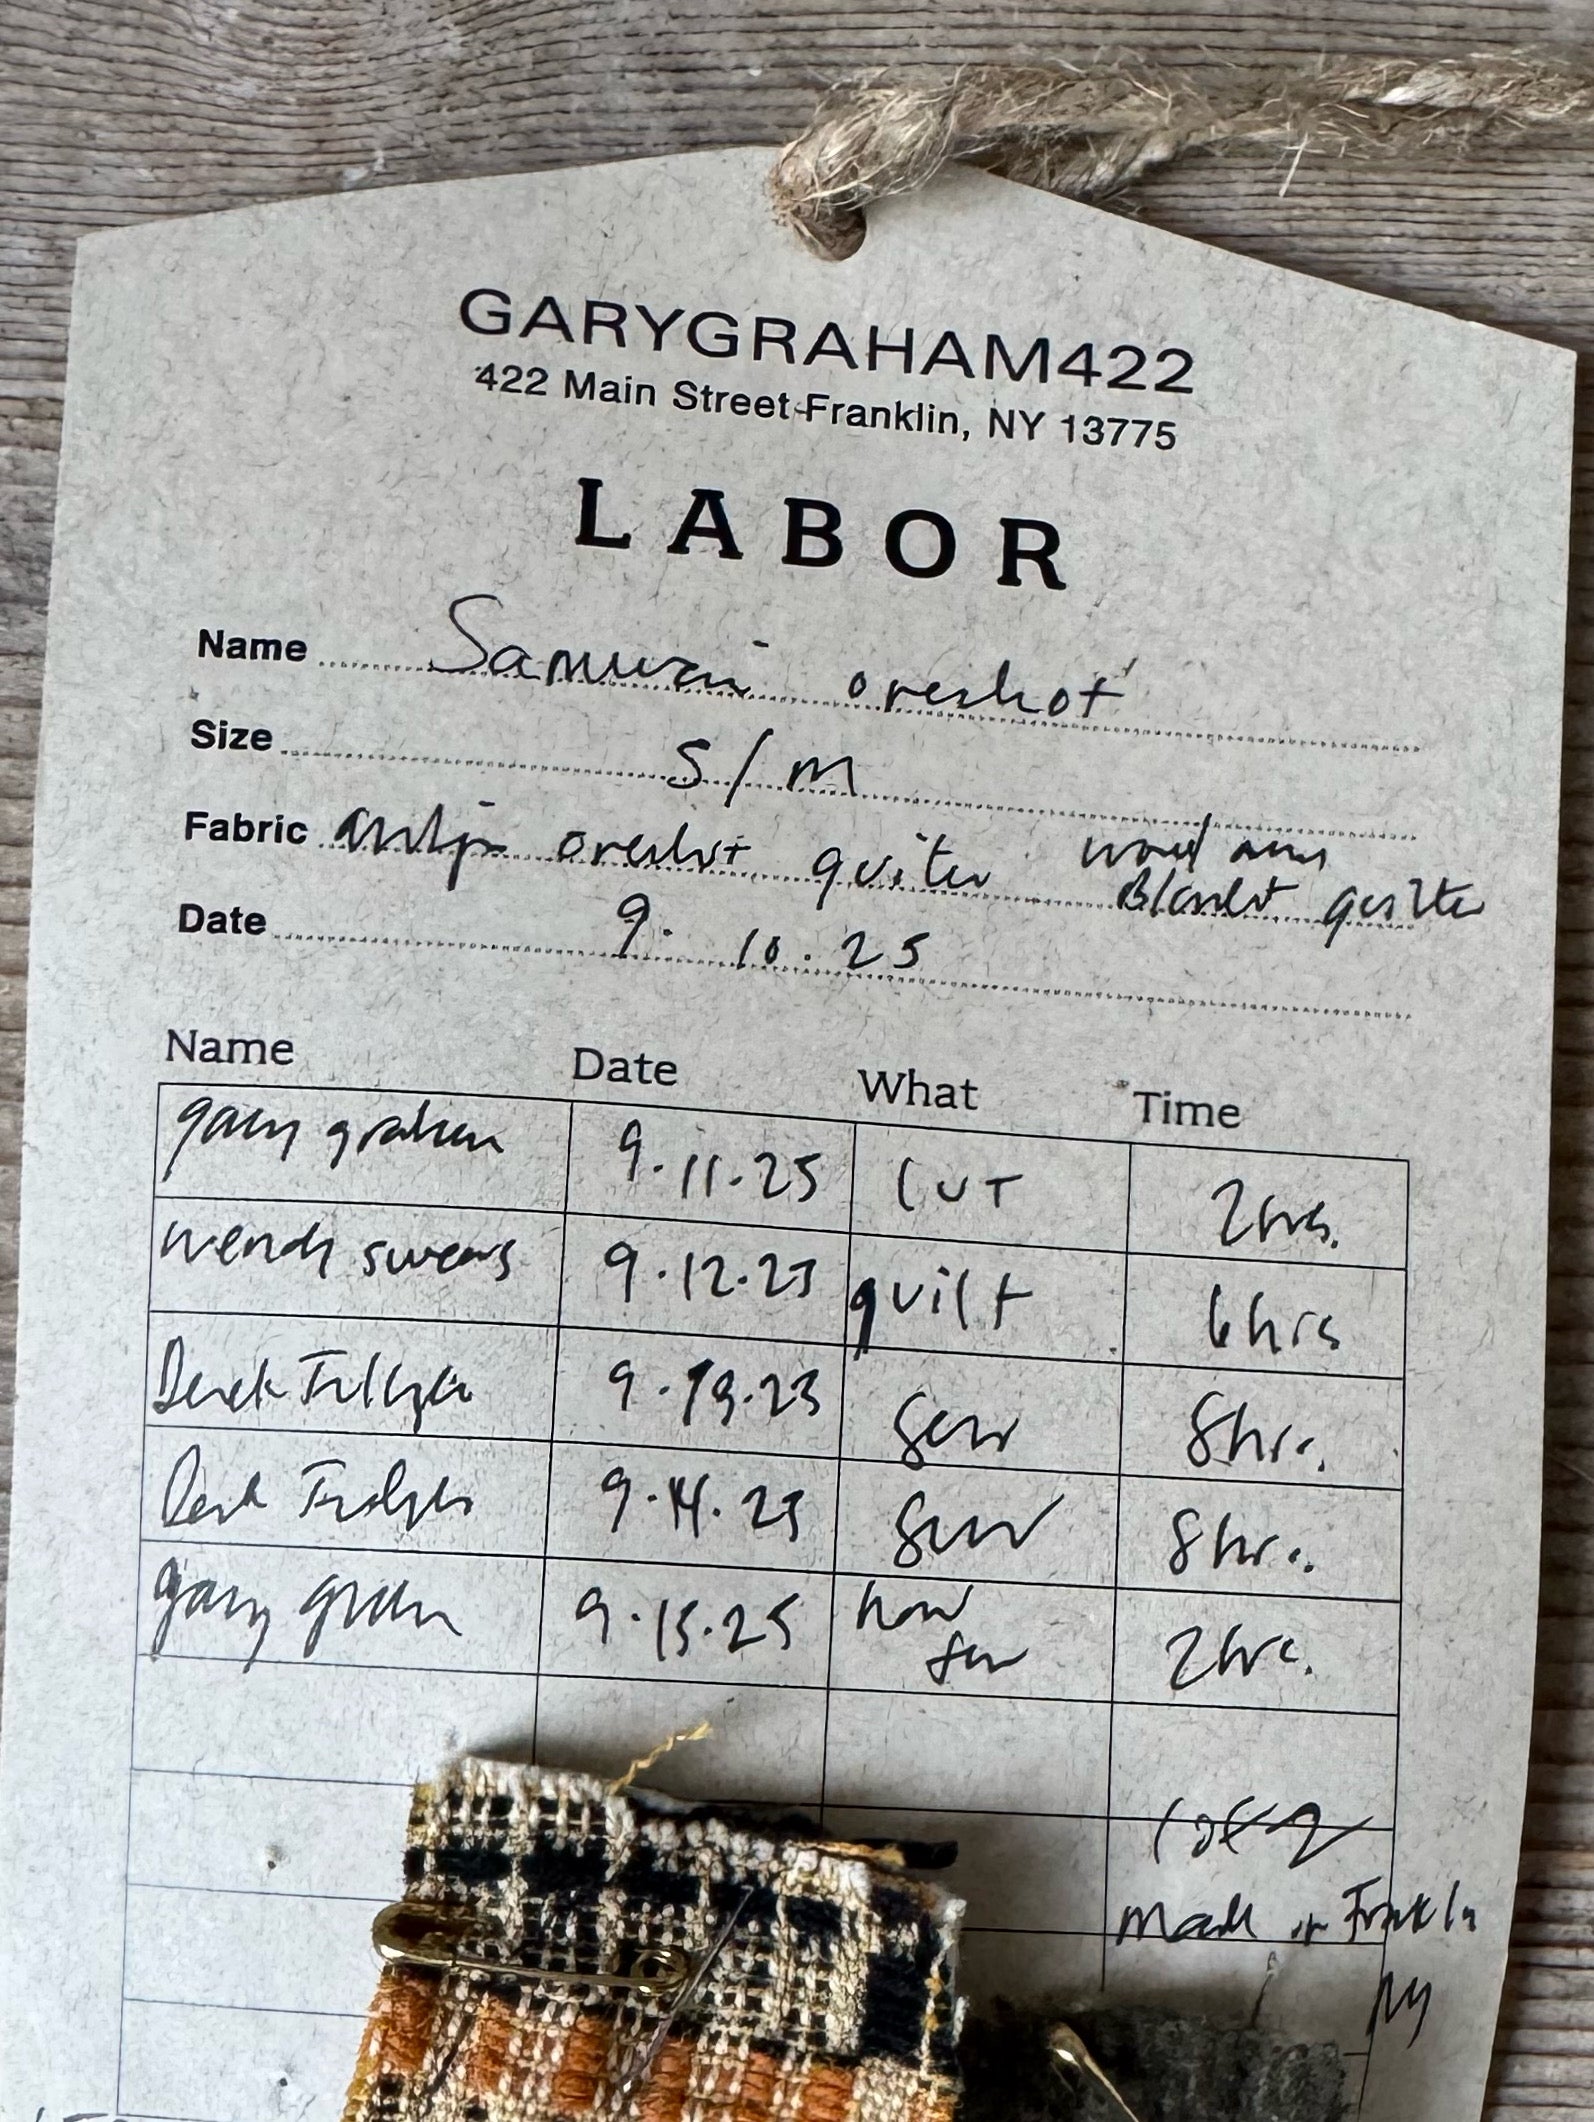 GARYGRAHAM422
422 Main Street-Franklin, NY 13775
LABOR
Name Samurai overshot
Size S/M
Fabric overshot quilted
Blanket quilted
Date 9.10.25
Name Date What Time
gary graham 9.11.25 CUT 2hrs.
wendy 9.12.25 quilt 6hrs
Derek 9.13.25 sew 8hrs.
Derek 9.14.25 sew 8hrs.
gary graham 9.15.25 sew 2hrs.
1 of
made in Franklin
NY